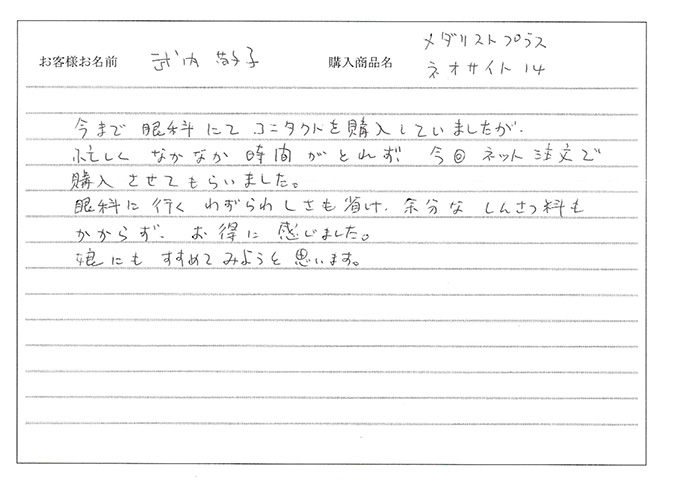 お客様お名前 武内 敬子 購入商品名 メダリストプラス
ネオサイト14
今まで 眼科にて コンタクトを購入していましたが、
忙しく なかなか 時間 がとれず、 今回 ネット 注文で
購入 させてもらいました。
眼科に 行く わずらわしさも 省け、余分な しんさつ料も
かからず、 お得に 感じました。
娘にも すすめてみようと 思います。